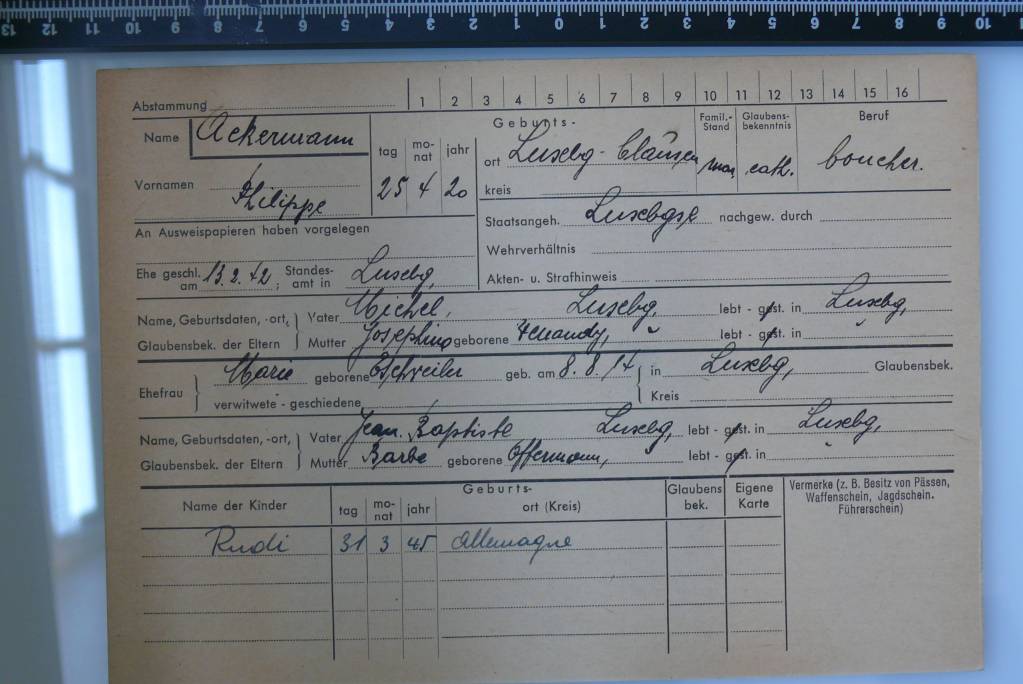 13 12 11 10 9 8 7 6 5 4 3 2 1 0 1 2 3 4 5 6 7 8 9 10
Abstammung 1 2 3 4 5 6 7 8 9 10 11 12 13 14 15 16
Name Ackermann
Vornamen Philippe
tag mo-nat jahr
25 4 20
Geburts-
ort Luxbg-Clausen
kreis
Famil.-Stand mar.
Glaubens-bekenntnis cath.
Beruf boucher.
An Ausweispapieren haben vorgelegen
Staatsangeh. Luxbgs. nachgew. durch
Wehrverhältnis
Akten- u. Strafhinweis
Ehe geschl. am 13.2.42; Standes-amt in Luxbg,
Name, Geburtsdaten, -ort, Glaubensbek. der Eltern
Vater Michel, Luxbg. lebt - gest. in Luxbg,
Mutter Josephine geborene lebt - gest. in "
Ehefrau Marie geborene Eschweiler geb. am 8.8.14 in Luxbg, Glaubensbek.
verwitwete - geschiedene Kreis
Name, Geburtsdaten, -ort, Glaubensbek. der Eltern
Vater Jean. Baptiste Luxbg, lebt - gest. in Luxbg,
Mutter Barbe geborene Offermann, lebt - gest. in "
Name der Kinder
Geburts-
tag mo-nat jahr ort (Kreis)
Glaubens bek.
Eigene Karte
Vermerke (z. B. Besitz von Pässen, Waffenschein, Jagdschein. Führerschein)
Rudi 31 3 45 Allemagne